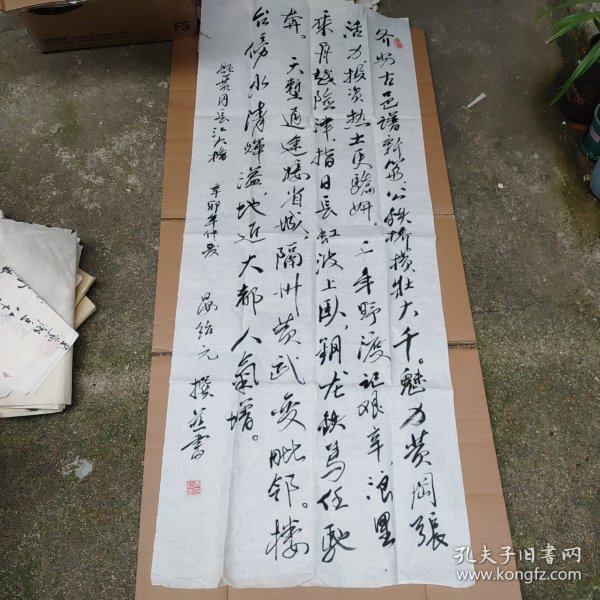 齐安古邑谱新篇公铁桥横壮大千。魅力黄冈张
活力投资热土更骄妍。二年野渡记艰辛浪里
乘月越险津指日长虹波上卧,钢龙铁马任驰
奔。天堑通途接省城隔州黄武变毗邻。楼
台傍水清辉溢,地近大都人气增。
题黄冈长江大桥
辛卯年仲夏
绍元撰并书
孔夫子旧书网
www.kongfz.com
F5